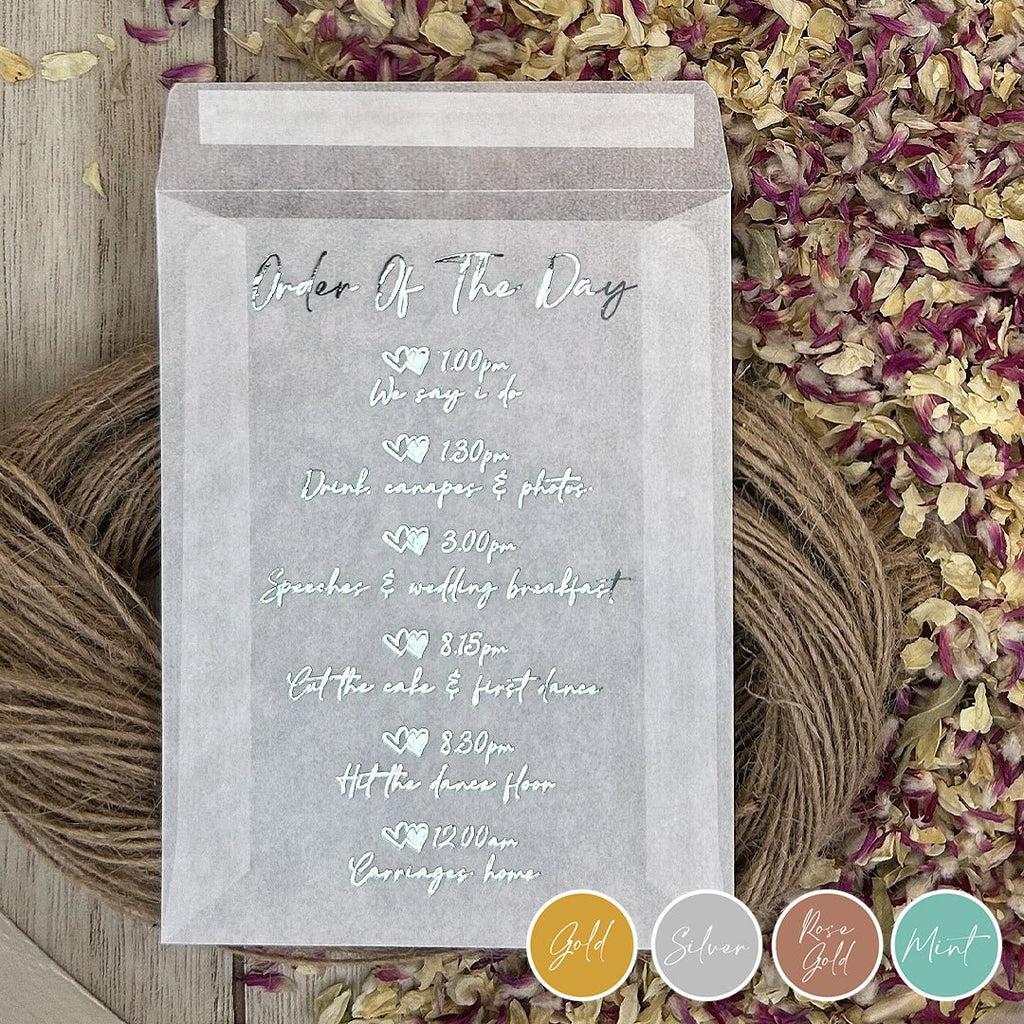 Order Of The Day
1.00pm
We say i do
1.30pm
Drink, canapes & photos
3.00pm
Speeches & wedding breakfast
8.15pm
Cut the cake & first dance
8.30pm
Hit the dance floor
12.00am
Carriages home
Gold
Silver
Rose
Gold
Mint